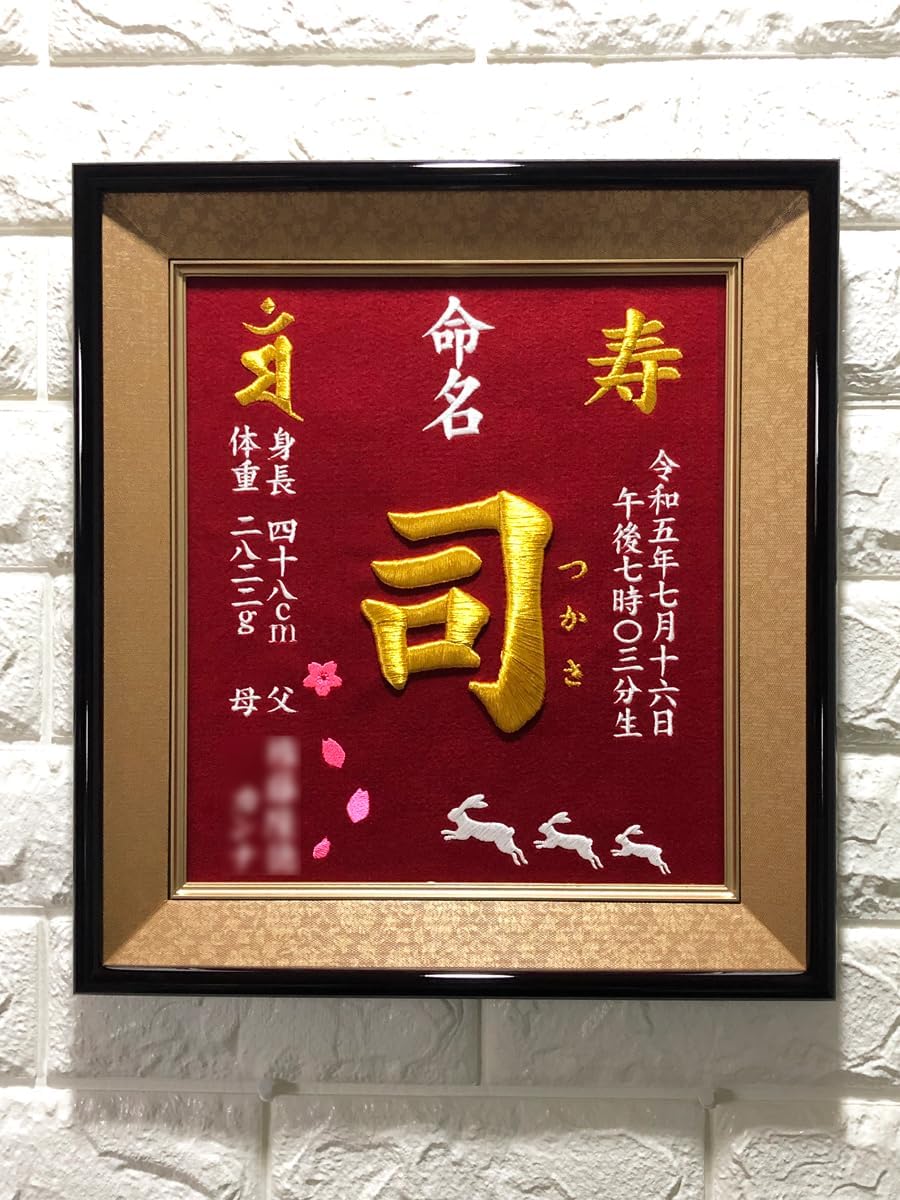 寿
令和五年七月十六日
午後七時〇三分生
命名
司
つかさ
𑖦𑖽
身長 四十八cm 父
体重 二八二二g 母